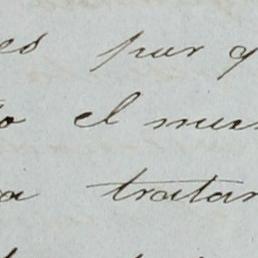 es pur q
o el mus
a tratan